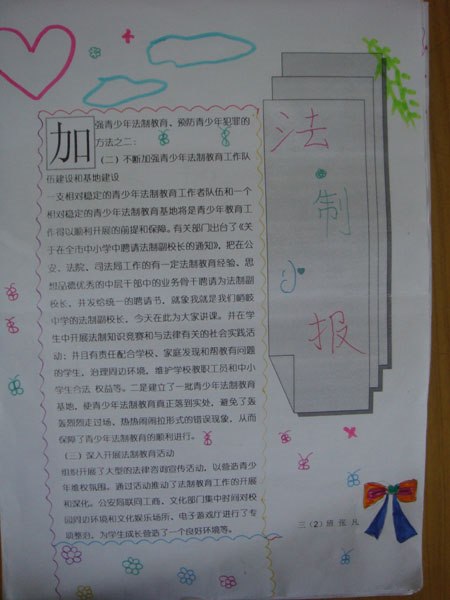 加
强青少年法制教育、预防青少年犯罪的
方法之二：
（二）不断加强青少年法制教育工作队
伍建设和基地建设
一支相对稳定的青少年法制教育工作者队伍和一个
相对稳定的青少年法制教育基地将是青少年教育工
作得以顺利开展的前提和保障。有关部门出台了《关
于在全市中小学中聘请法制副校长的通知》，把在公
安、法院、司法局工作的有一定法制教育经验、思
想品德优秀的中层干部中的业务骨干聘请为法制副
校长，并发给统一的聘请书，就象我就是我们崤岐
中学的法制副校长，今天在此为大家讲课。并在学
生中开展法制知识竞赛和与法律有关的社会实践活
动；并且有责任配合学校、家庭发现和帮教有问题
的学生，治理周边环境，维护学校教职工员和中小
学生合法 权益等。二是建立了一批青少年法制教育
基地，使青少年法制教育真正落到实处，避免了轰
轰烈烈走过场、热热闹闹拉形式的错误现象，从而
保障了青少年法制教育的顺利进行。
（三）深入开展法制教育活动
组织开展了大型的法律咨询宣传活动，以营造青少
年维权氛围。通过活动推动了法制教育工作的开展
和深化。公安局联同工商、文化部门集中时间对校
园周边环境和文化娱乐场所、电子游戏厅进行了专
项整治，为学生成长营造了一个良好环境等。
法
制
小
报
三（2）班 张 凡